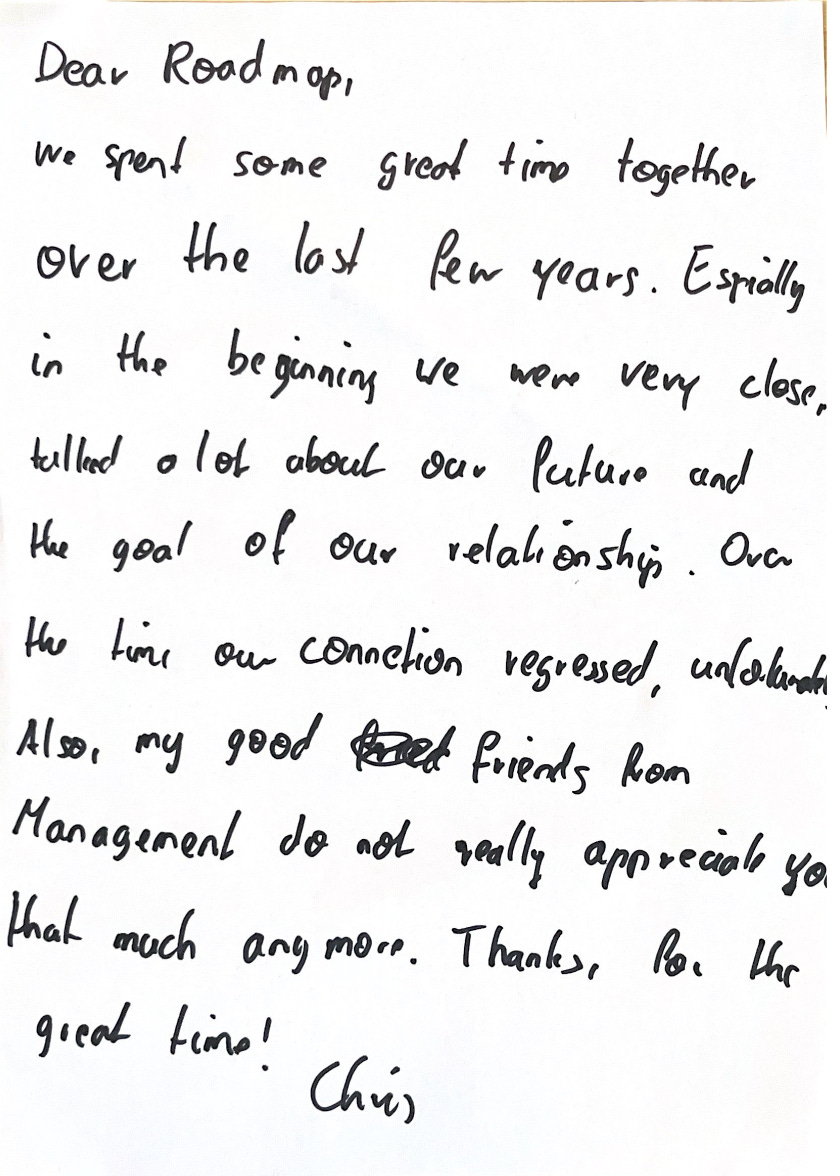 Dear Roadmap,
we spent some great time together
over the last few years. Espially
in the beginning we were very close,
talked a lot about our future and
the goal of our relationship. Over
the time our connction regressed, unfortunately
Also, my good friends from
Management do not really appreciate you
that much any more. Thanks, for the
great time!
Chris